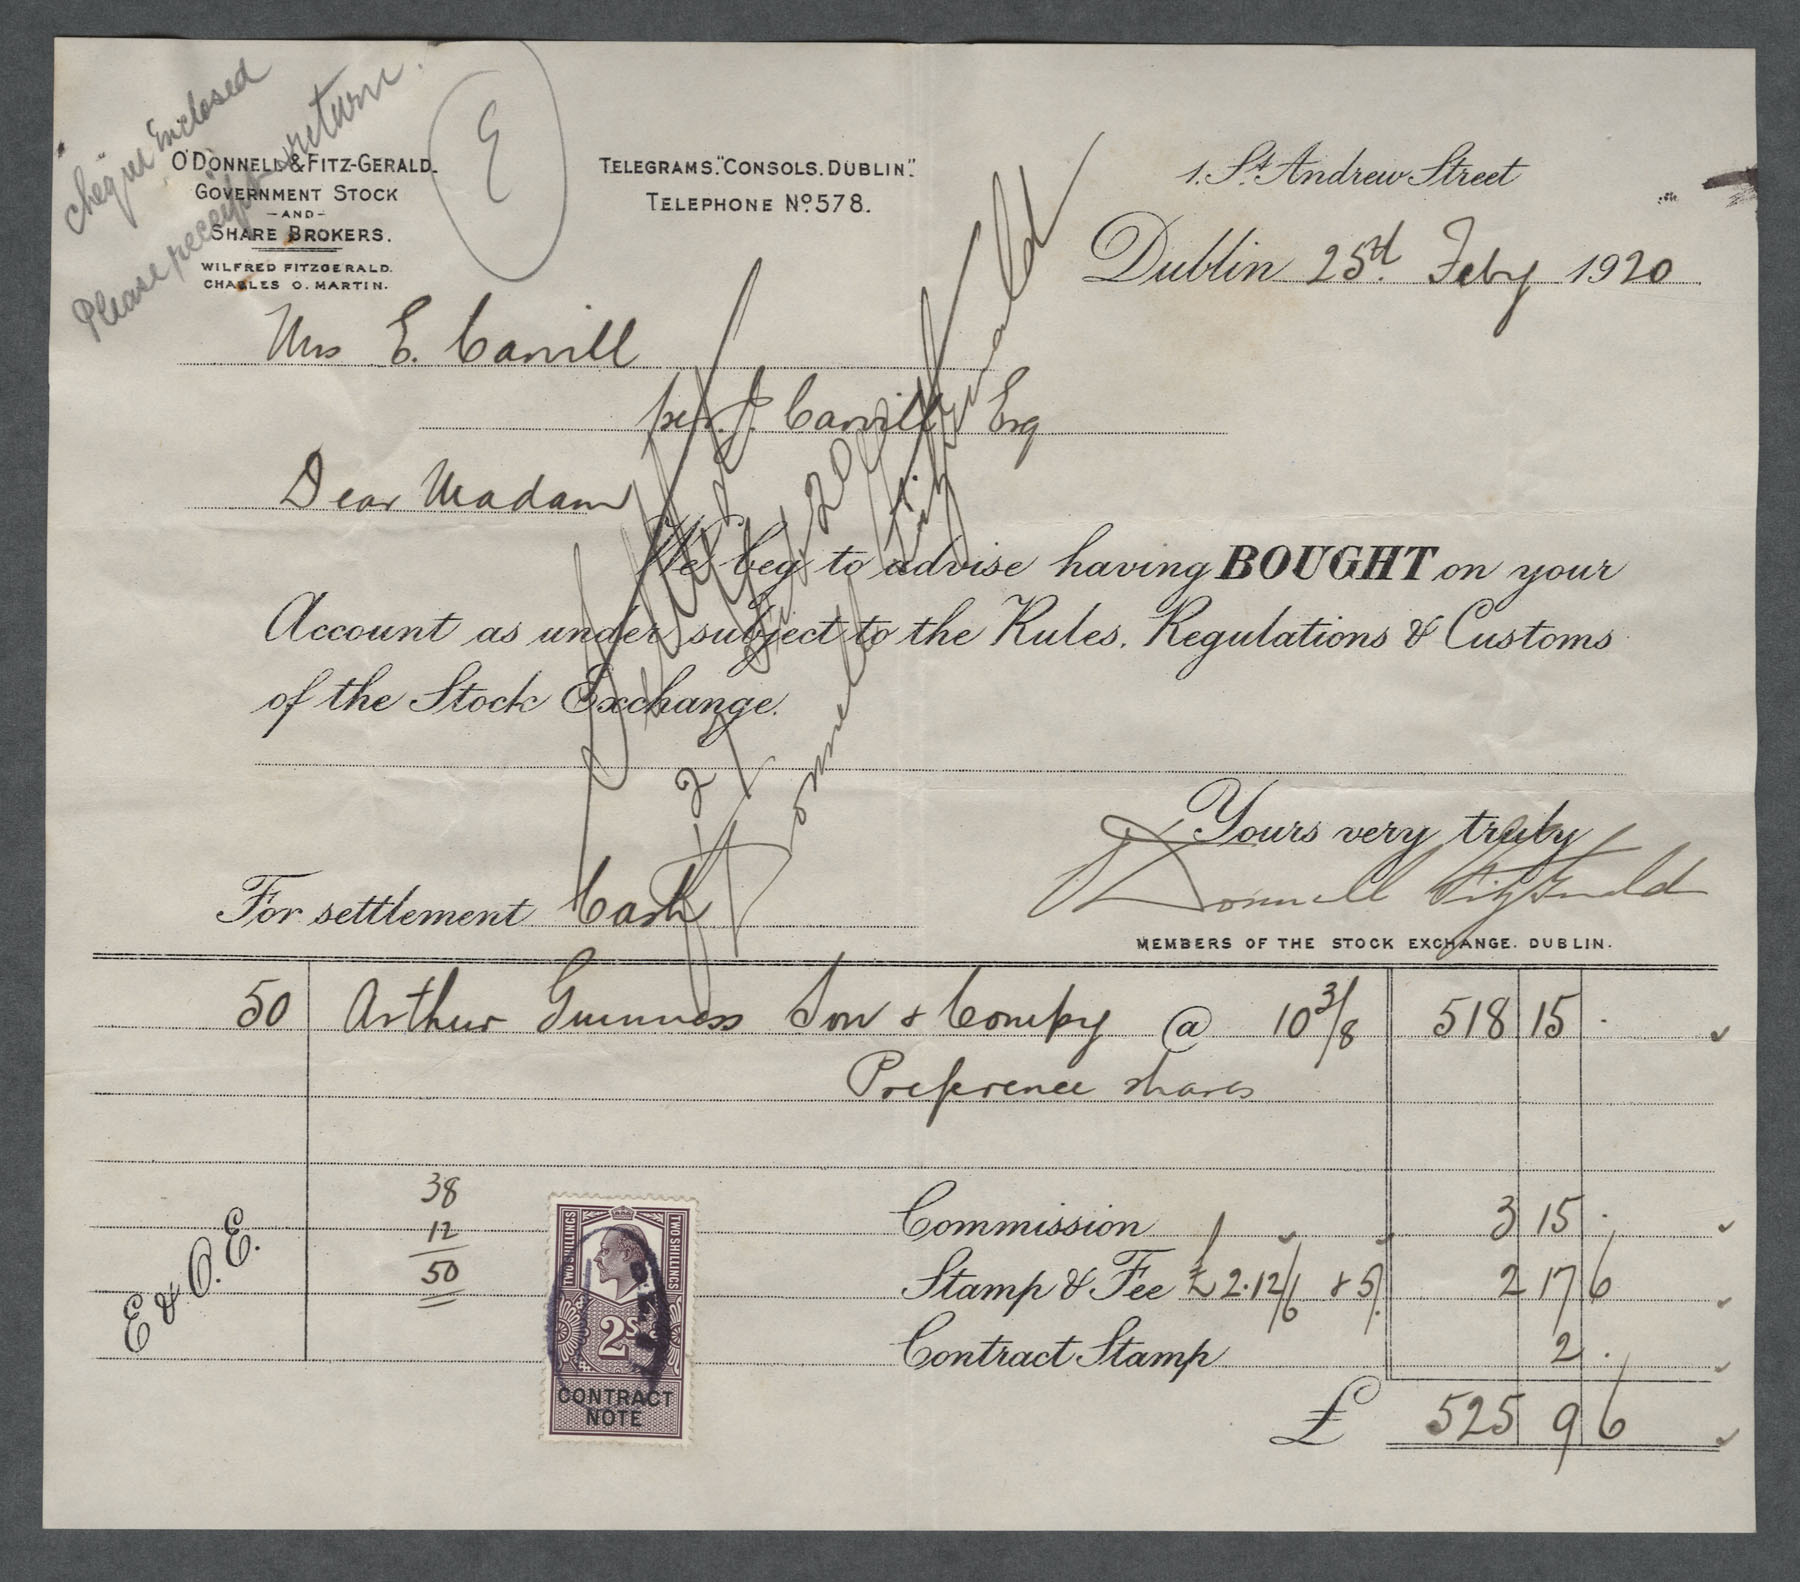 Cheque Enclosed
Please receipt & return.
E
O'DONNELL & FITZ-GERALD.
GOVERNMENT STOCK
- AND -
SHARE BROKERS.
WILFRED FITZGERALD.
CHARLES O. MARTIN.
TELEGRAMS. "CONSOLS. DUBLIN."
TELEPHONE No. 578.
1. St. Andrew Street
Dublin 25th Feby 1920
Mrs E. Carvill
per J. Carvill Esq
Dear Madam
We beg to advise having BOUGHT on your
Account as under subject to the Rules, Regulations & Customs
of the Stock Exchange.
Yours very truly
O'Donnell Fitzgerald
For settlement Cash
MEMBERS OF THE STOCK EXCHANGE. DUBLIN.
50 Arthur Guinness Son & Compy @ 10 3/8 518 15 .
Preference shares
38
12
50
Commission 3 15 .
Stamp & Fee £2.12/6 & 5/. 2 17 6
Contract Stamp 2 .
£ 525 9 6
E & O.E.
TWO SHILLINGS
TWO SHILLINGS
2s
CONTRACT
NOTE
O'Donnell Fitzgerald